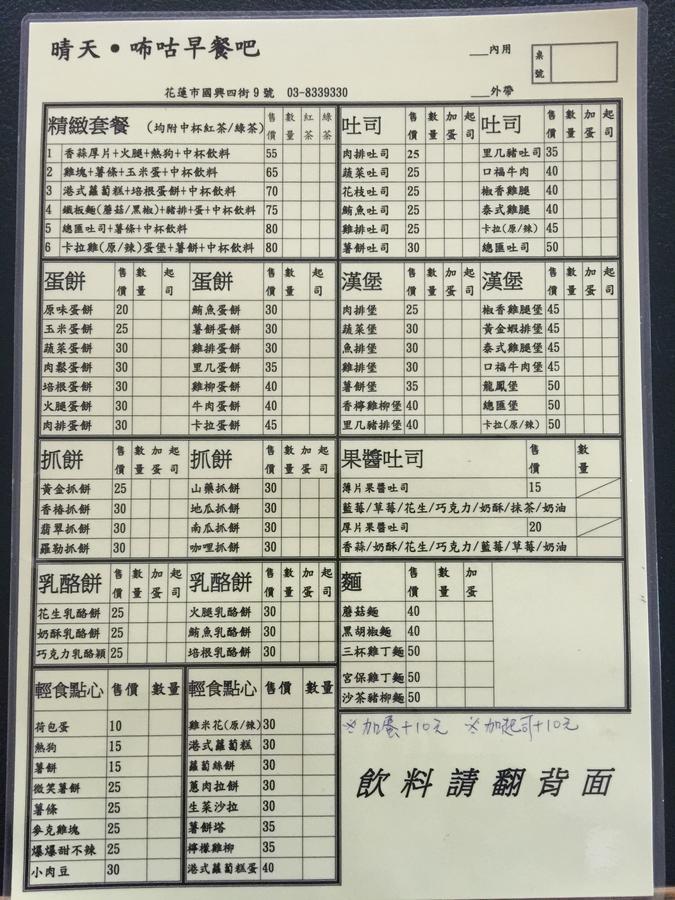 晴天•咘咕早餐吧
__內用
桌號
花蓮市國興四街9號 03-8339330
__外帶
精緻套餐 (均附中杯紅茶/綠茶) 售價 數量 紅茶 綠茶
1 香蒜厚片+火腿+熱狗+中杯飲料 55
2 雞塊+薯條+玉米蛋+中杯飲料 65
3 港式蘿蔔糕+培根蛋餅+中杯飲料 70
4 鐵板麵(蘑菇/黑椒)+豬排+蛋+中杯飲料 75
5 總匯吐司+薯條+中杯飲料 80
6 卡拉雞(原/辣)蛋堡+薯餅+中杯飲料 80
吐司 售價 數量 加蛋 起司
肉排吐司 25
蔬菜吐司 25
花枝吐司 25
鮪魚吐司 25
雞排吐司 25
薯餅吐司 30
吐司 售價 數量 加蛋 起司
里几豬吐司 35
口福牛肉 40
椒香雞腿 40
泰式雞腿 40
卡拉(原/辣) 45
總匯吐司 50
蛋餅 售價 數量 起司
原味蛋餅 20
玉米蛋餅 25
蔬菜蛋餅 30
肉鬆蛋餅 30
培根蛋餅 30
火腿蛋餅 30
肉排蛋餅 30
蛋餅 售價 數量 起司
鮪魚蛋餅 30
薯餅蛋餅 30
雞排蛋餅 30
里几蛋餅 35
雞柳蛋餅 40
牛肉蛋餅 40
卡拉蛋餅 45
漢堡 售價 數量 加蛋 起司
肉排堡 25
蔬菜堡 30
魚排堡 30
雞排堡 30
薯餅堡 35
香檸雞柳堡 40
里几豬排堡 40
漢堡 售價 數量 加蛋 起司
椒香雞腿堡 45
黃金蝦排堡 45
泰式雞腿堡 45
口福牛肉堡 45
龍鳳堡 50
總匯堡 50
卡拉(原/辣) 50
抓餅 售價 數量 加蛋 起司
黃金抓餅 25
香椿抓餅 30
翡翠抓餅 30
羅勒抓餅 30
抓餅 售價 數量 加蛋 起司
山藥抓餅 30
地瓜抓餅 30
南瓜抓餅 30
咖哩抓餅 30
果醬吐司 售價 數量
薄片果醬吐司 15
藍莓/草莓/花生/巧克力/奶酥/抹茶/奶油
厚片果醬吐司 20
香蒜/奶酥/花生/巧克力/藍莓/草莓/奶油
乳酪餅 售價 數量 加蛋 起司
花生乳酪餅 25
奶酥乳酪餅 25
巧克力乳酪穎 25
乳酪餅 售價 數量 加蛋 起司
火腿乳酪餅 30
鮪魚乳酪餅 30
培根乳酪餅 30
麵 售價 數量 加蛋
蘑菇麵 40
黑胡椒麵 40
三杯雞丁麵 50
宮保雞丁麵 50
沙茶豬柳麵 50
輕食點心 售價 數量
荷包蛋 10
熱狗 15
薯餅 15
微笑薯餅 25
薯條 25
麥克雞塊 25
爆爆甜不辣 25
小肉豆 30
輕食點心 售價 數量
雞米花(原/辣) 30
港式蘿蔔糕 30
蘿蔔絲餅 30
蔥肉拉餅 30
生菜沙拉 30
薯餅塔 35
檸檬雞柳 35
港式蘿蔔糕蛋 40
※加蛋+10元 ※加起司+10元
飲料請翻背面